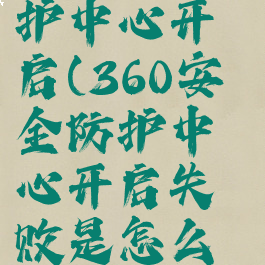 护中心开
启(360安
全防护中
心开启失
败是怎么